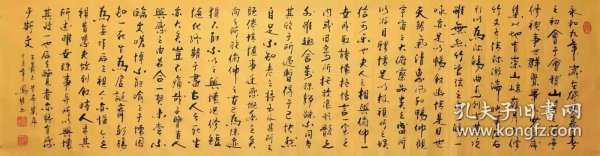 永和九年歲在癸丑暮春
之初會于會稽山陰之蘭亭
修禊事也群賢畢至少長咸
集此地有崇山峻嶺茂林修
竹又有清流激湍映帶左右
引以為流觴曲水列坐其次
雖無絲竹管弦之盛一觴一
詠亦足以暢敘幽情是日也
天朗氣清惠風和暢仰觀
宇宙之大俯察品類之盛所
以遊目騁懷足以極視聽之娛
信可樂也夫人之相與俯仰一
世或取諸懷抱悟言一室之
內或因寄所託放浪形骸之
外雖趣舍萬殊靜躁不同當
其欣於所遇暫得於己快然
自足不知老之將至及其所之
既倦情隨事遷感慨係之矣
向之所欣俯仰之間已為陳迹
猶不能不以之興懷況修短
隨化終期於盡古人云死生
亦大矣豈不痛哉每覽昔人
興感之由若合一契未嘗不
臨文嗟悼不能喻之於懷固
知一死生為虛誕齊彭殤
為妄作後之視今亦猶今之
視昔悲夫故列敘時人錄其
所述雖世殊事異所以興懷
其致一也後之覽者亦將有感
於斯文
王羲之蘭亭集序
孔夫子旧书网
KONGFZ.COM